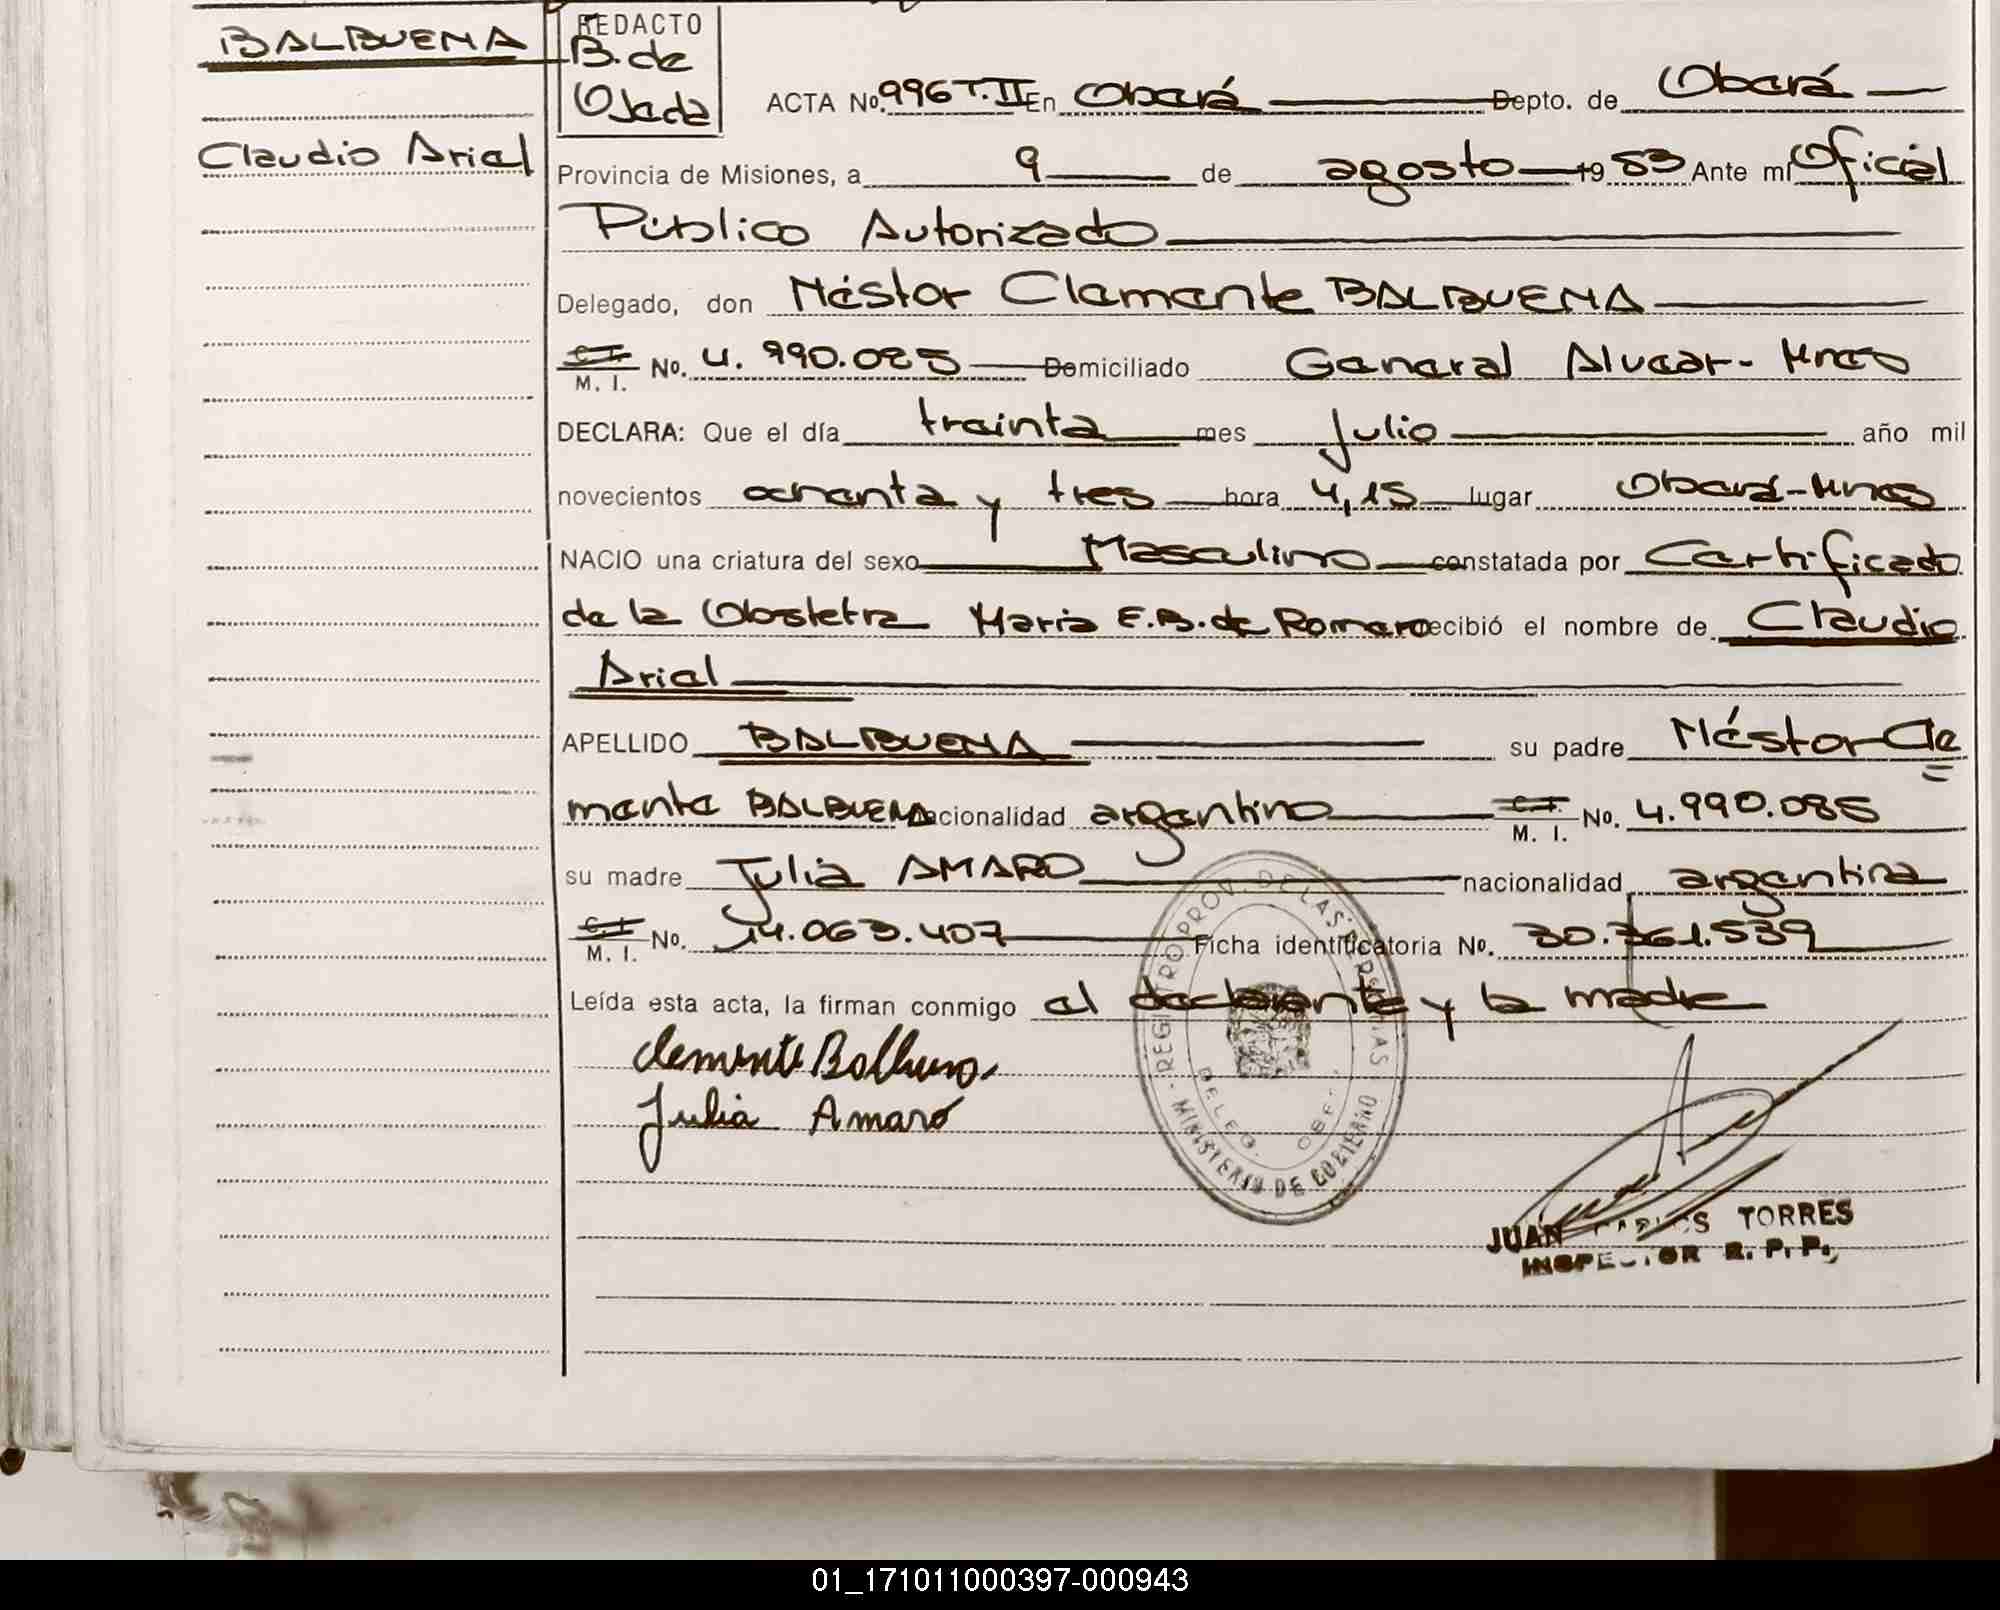 BALBUENA
Claudio Ariel
REDACTO
B. de
Ojeda
ACTA No. 996 T.II En Oberá Depto. de Oberá
Provincia de Misiones, a 9 de agosto 19 83 Ante mí Oficial
Público Autorizado
Delegado, don Néstor Clemente BALBUENA
C. I. M. I. No. 4.990.085 Domiciliado General Alvear - Mnes
DECLARA: Que el día treinta mes julio año mil
novecientos ochenta y tres hora 4,15 lugar Oberá-Mnes
NACIO una criatura del sexo Masculino constatada por Certificado
de la Obstetra Maria E.B. de Romero recibió el nombre de Claudio
Ariel
APELLIDO BALBUENA su padre Néstor Cle
mente BALBUENA nacionalidad argentino C. I. M. I. No. 4.990.085
su madre Julia AMARO nacionalidad argentina
C. I. M. I. No. 14.063.407 Ficha identificatoria No. 30.361.539
Leída esta acta, la firman conmigo el declarante y la madre
Clemente Balbuena
Julia Amaro
REGISTRO PROV. DE LAS PERSONAS
MINISTERIO DE GOBIERNO
DELEG. OBE
JUAN CARLOS TORRES
INSPECTOR R. P. P.
01_171011000397-000943